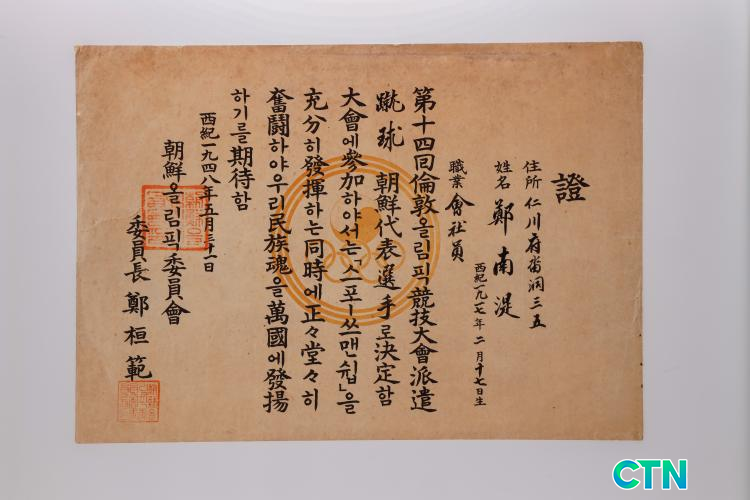 證
住所 仁川府畓洞三五
姓名 鄭南湜
西紀一九一七年 二月十七日生
職業 會社員
第十四回倫敦올림픽競技大會派遣
蹴球 朝鮮代表選手로決定함
大會에參加하야서는「스포-쓰맨쉽」을
充分히發揮하는同時에正々堂々히
奮鬪하야우리民族魂을萬國에發揚
하기를期待함
西紀一九四八年五月三十一日
朝鮮올림픽委員會
委員長 鄭桓範
CTN